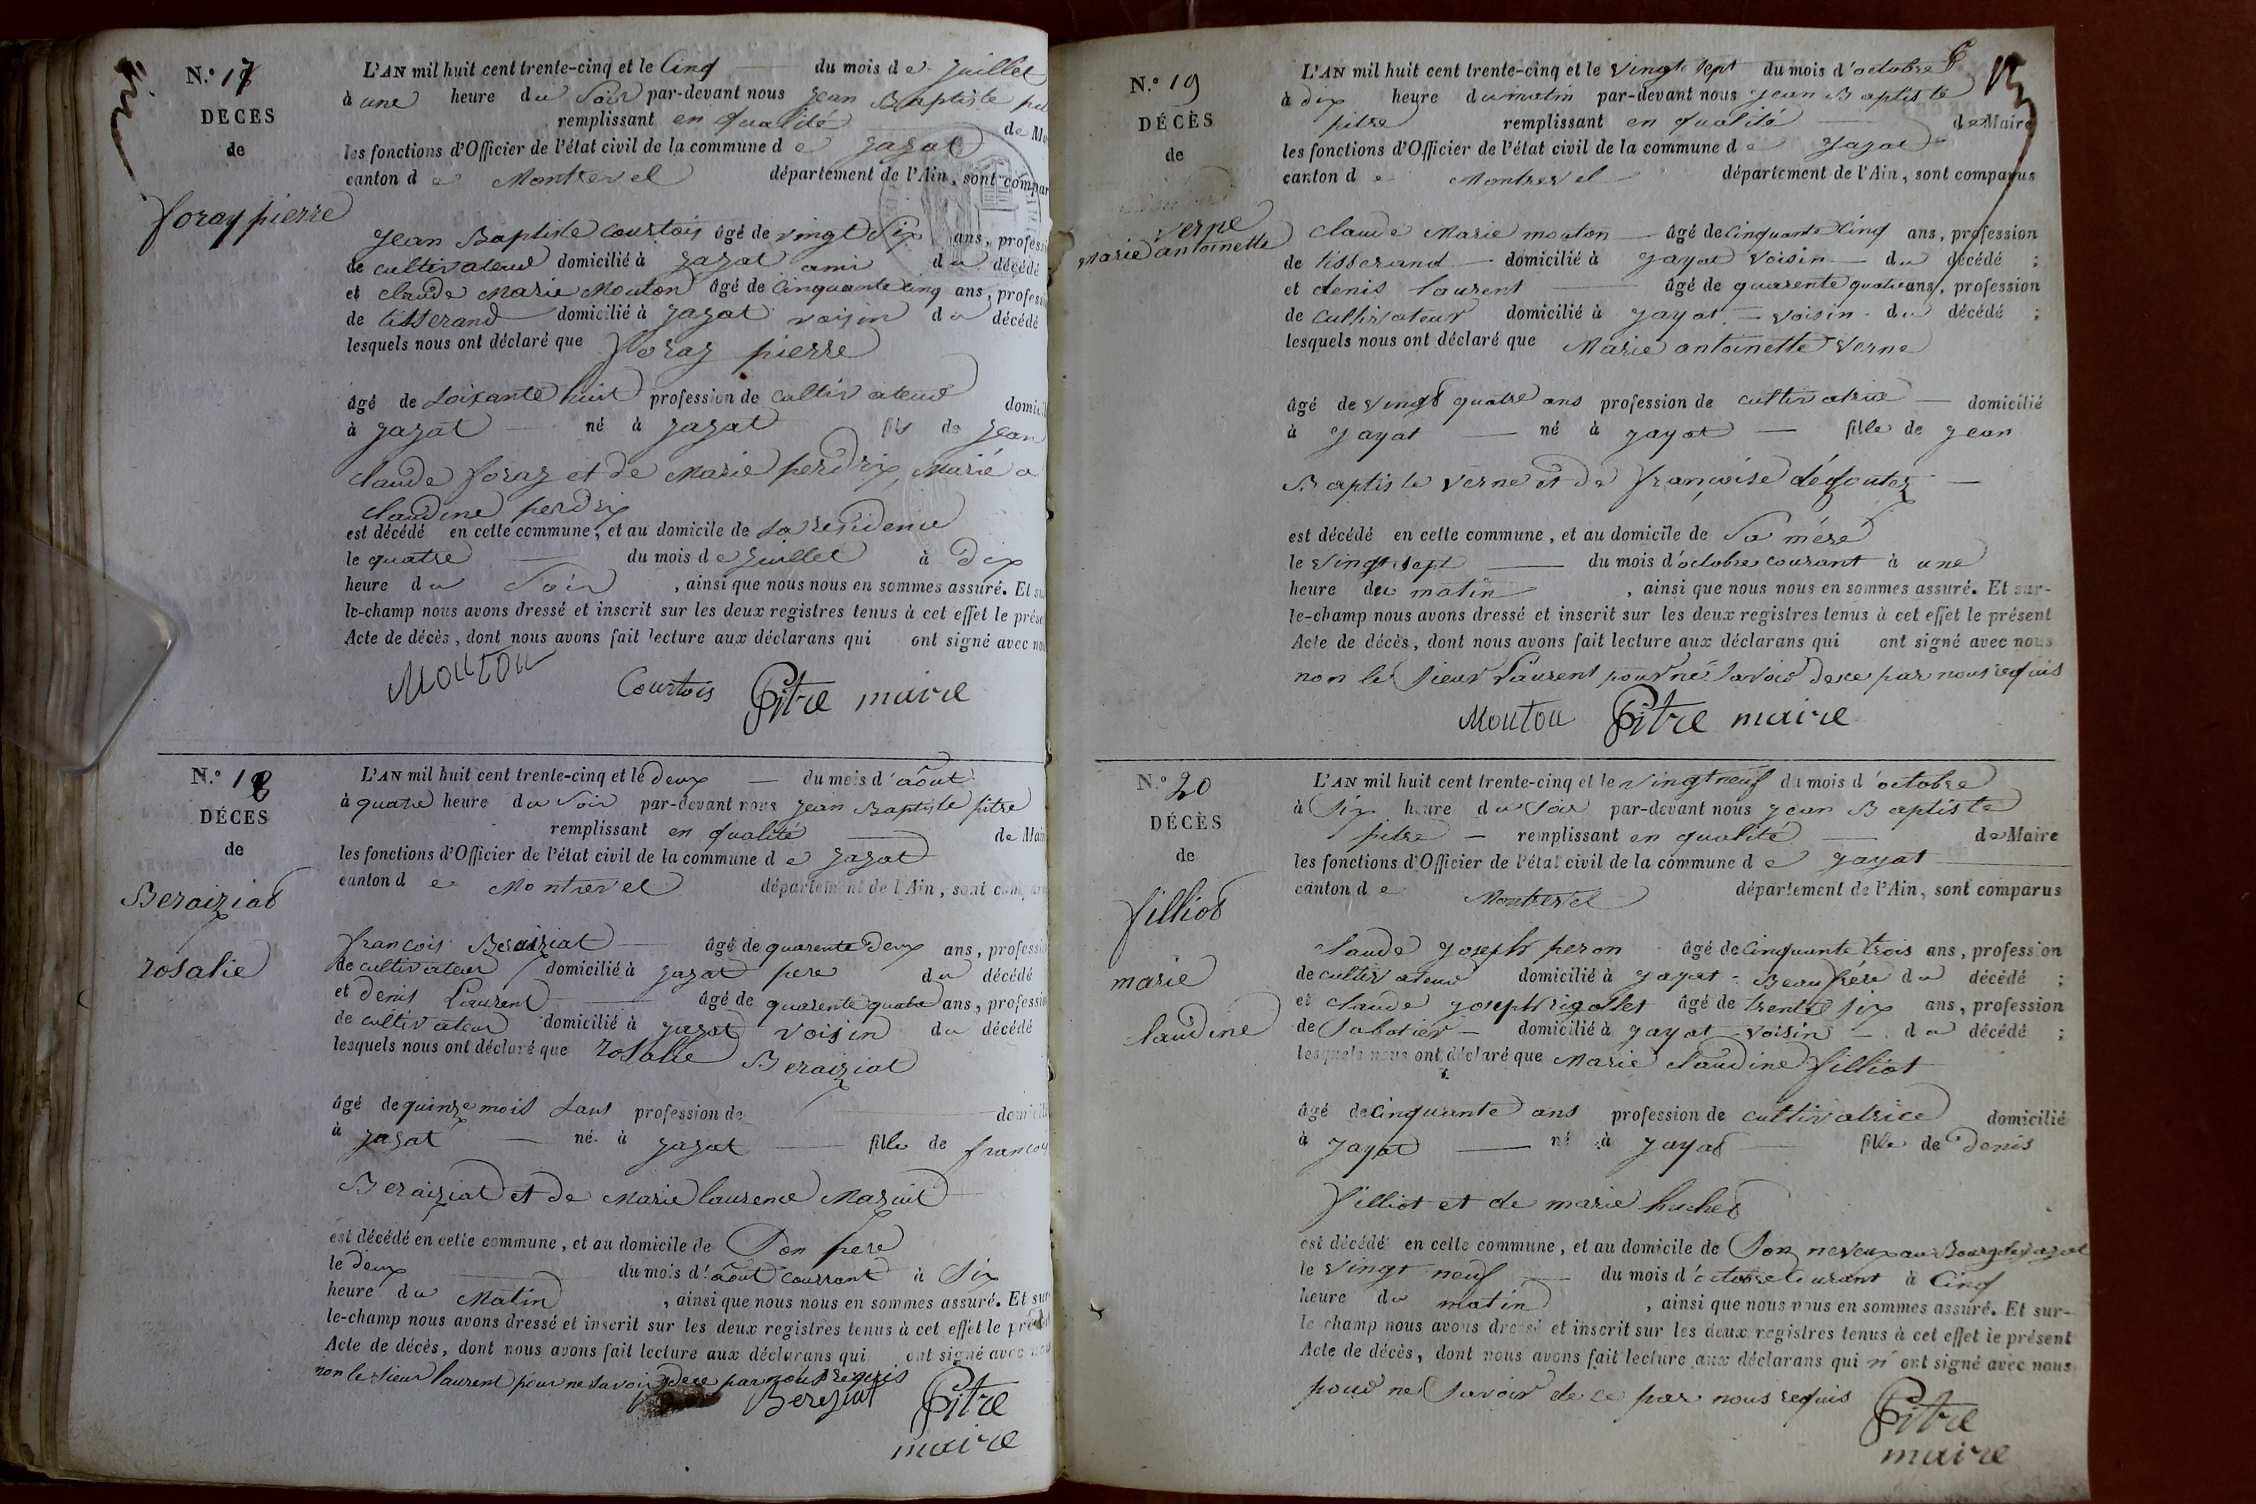 N.° 17
DÉCES
de
foray pierre
L'AN mil huit cent trente-cinq et le Cinq du mois de juillet
à une heure du Soir par-devant nous jean Baptiste
remplissant en qualité de
les fonctions d'Officier de l'état civil de la commune de jayat
canton de Montrevel département de l'Ain, sont
jean Baptiste Courtois âgé de vingt Six ans,
de cultivateur domicilié à jayat ami du décédé
et claude Marie Mouton âgé de Cinquante cinq ans,
de tisserand domicilié à jayat voisin du décédé
lesquels nous ont déclaré que foray pierre
âgé de soixante huit profession de cultivateur
à jayat né à jayat fils de jean
claude foray et de Marie perdrix, Marié a
claudine perdrix
est décédé en cette commune, et au domicile de sa residence
le quatre du mois de juillet à Dix
heure du Soir , ainsi que nous nous en sommes assuré. Et
le-champ nous avons dressé et inscrit sur les deux registres tenus à cet effet le
Acte de décès, dont nous avons fait lecture aux déclarans qui ont signé avec
Mouton Courtois Pitre maire
N.° 18
DÉCES
de
Beraiziat
rosalie
L'AN mil huit cent trente-cinq et le deux du mois d'août
à quatre heure du Soir par-devant nous jean Baptiste pitre
remplissant en qualité de
les fonctions d'Officier de l'état civil de la commune de jayat
canton de Montrevel département de l'Ain, sont
francois Beraiziat âgé de quarente Deux ans,
de cultivateur domicilié à jayat pere du décédé
et denis Laurent âgé de quarente quatre ans,
de cultivateur domicilié à jayat voisin du décédé
lesquels nous ont déclaré que rosalie Beraiziat
âgé de quinze mois sans profession de
à jayat né à jayat fille de francois
Beraiziat et de Marie laurence
est décédé en cette commune, et au domicile de Son pere
le Deux du mois d'août courrant à Six
heure du Matin , ainsi que nous nous en sommes assuré. Et
le-champ nous avons dressé et inscrit sur les deux registres tenus à cet effet le
Acte de décès, dont nous avons fait lecture aux déclarans qui ont signé avec
non le sieur laurent pour ne savoir de ce par nous requis
Bereziat Pitre
maire
N.° 19
DÉCÈS
de
verne
Marie antoinette
L'AN mil huit cent trente-cinq et le vingt sept du mois d'octobre
à dix heure du matin par-devant nous jean Baptiste
pitre remplissant en qualité de Maire
les fonctions d'Officier de l'état civil de la commune de jayat
canton de Montrevel département de l'Ain, sont comparus
claude Marie mouton âgé de Cinquante Cinq ans, profession
de tisserand domicilié à jayat voisin du décédé ;
et denis laurent âgé de quarente quatre ans, profession
de cultivateur domicilié à jayat voisin du décédé ;
lesquels nous ont déclaré que Marie antoinette verne
âgé de vingt quatre ans profession de cultivatrice domicilié
à jayat né à jayat fille de jean
Baptiste verne et de françoise
est décédé en cette commune, et au domicile de Sa mére
le vingt sept du mois d'octobre courant à une
heure du matin , ainsi que nous nous en sommes assuré. Et sur-
le-champ nous avons dressé et inscrit sur les deux registres tenus à cet effet le présent
Acte de décès, dont nous avons fait lecture aux déclarans qui ont signé avec nous
non le sieur Laurent pour ne savoir de ce par nous requis
Mouton Pitre maire
N.° 20
DÉCÈS
de
filliot
marie
claudine
L'AN mil huit cent trente-cinq et le vingt neuf du mois d'octobre
à Six heure du Soir par-devant nous jean Baptiste
pitre remplissant en qualité de Maire
les fonctions d'Officier de l'état civil de la commune de jayat
canton de Montrevel département de l'Ain, sont comparus
claude joseph peron âgé de Cinquante trois ans, profession
de cultivateur domicilié à jayat Beau frere du décédé ;
et claude joseph rigollet âgé de trente six ans, profession
de Sabotier domicilié à jayat voisin du décédé ;
lesquels nous ont déclaré que Marie claudine filliot
âgé de Cinquante ans profession de cultivatrice domicilié
à jayat né à jayat fille de Denis
filliot et de marie huchet
est décédé en cette commune, et au domicile de Son neveux au Bourg de jayat
le vingt neuf du mois d'octobre Courant à Cinq
heure du matin , ainsi que nous nous en sommes assuré. Et sur-
le champ nous avons dressé et inscrit sur les deux registres tenus à cet effet le présent
Acte de décès, dont nous avons fait lecture aux déclarans qui n'ont signé avec nous
pour ne savoir de ce par nous requis
Pitre
maire